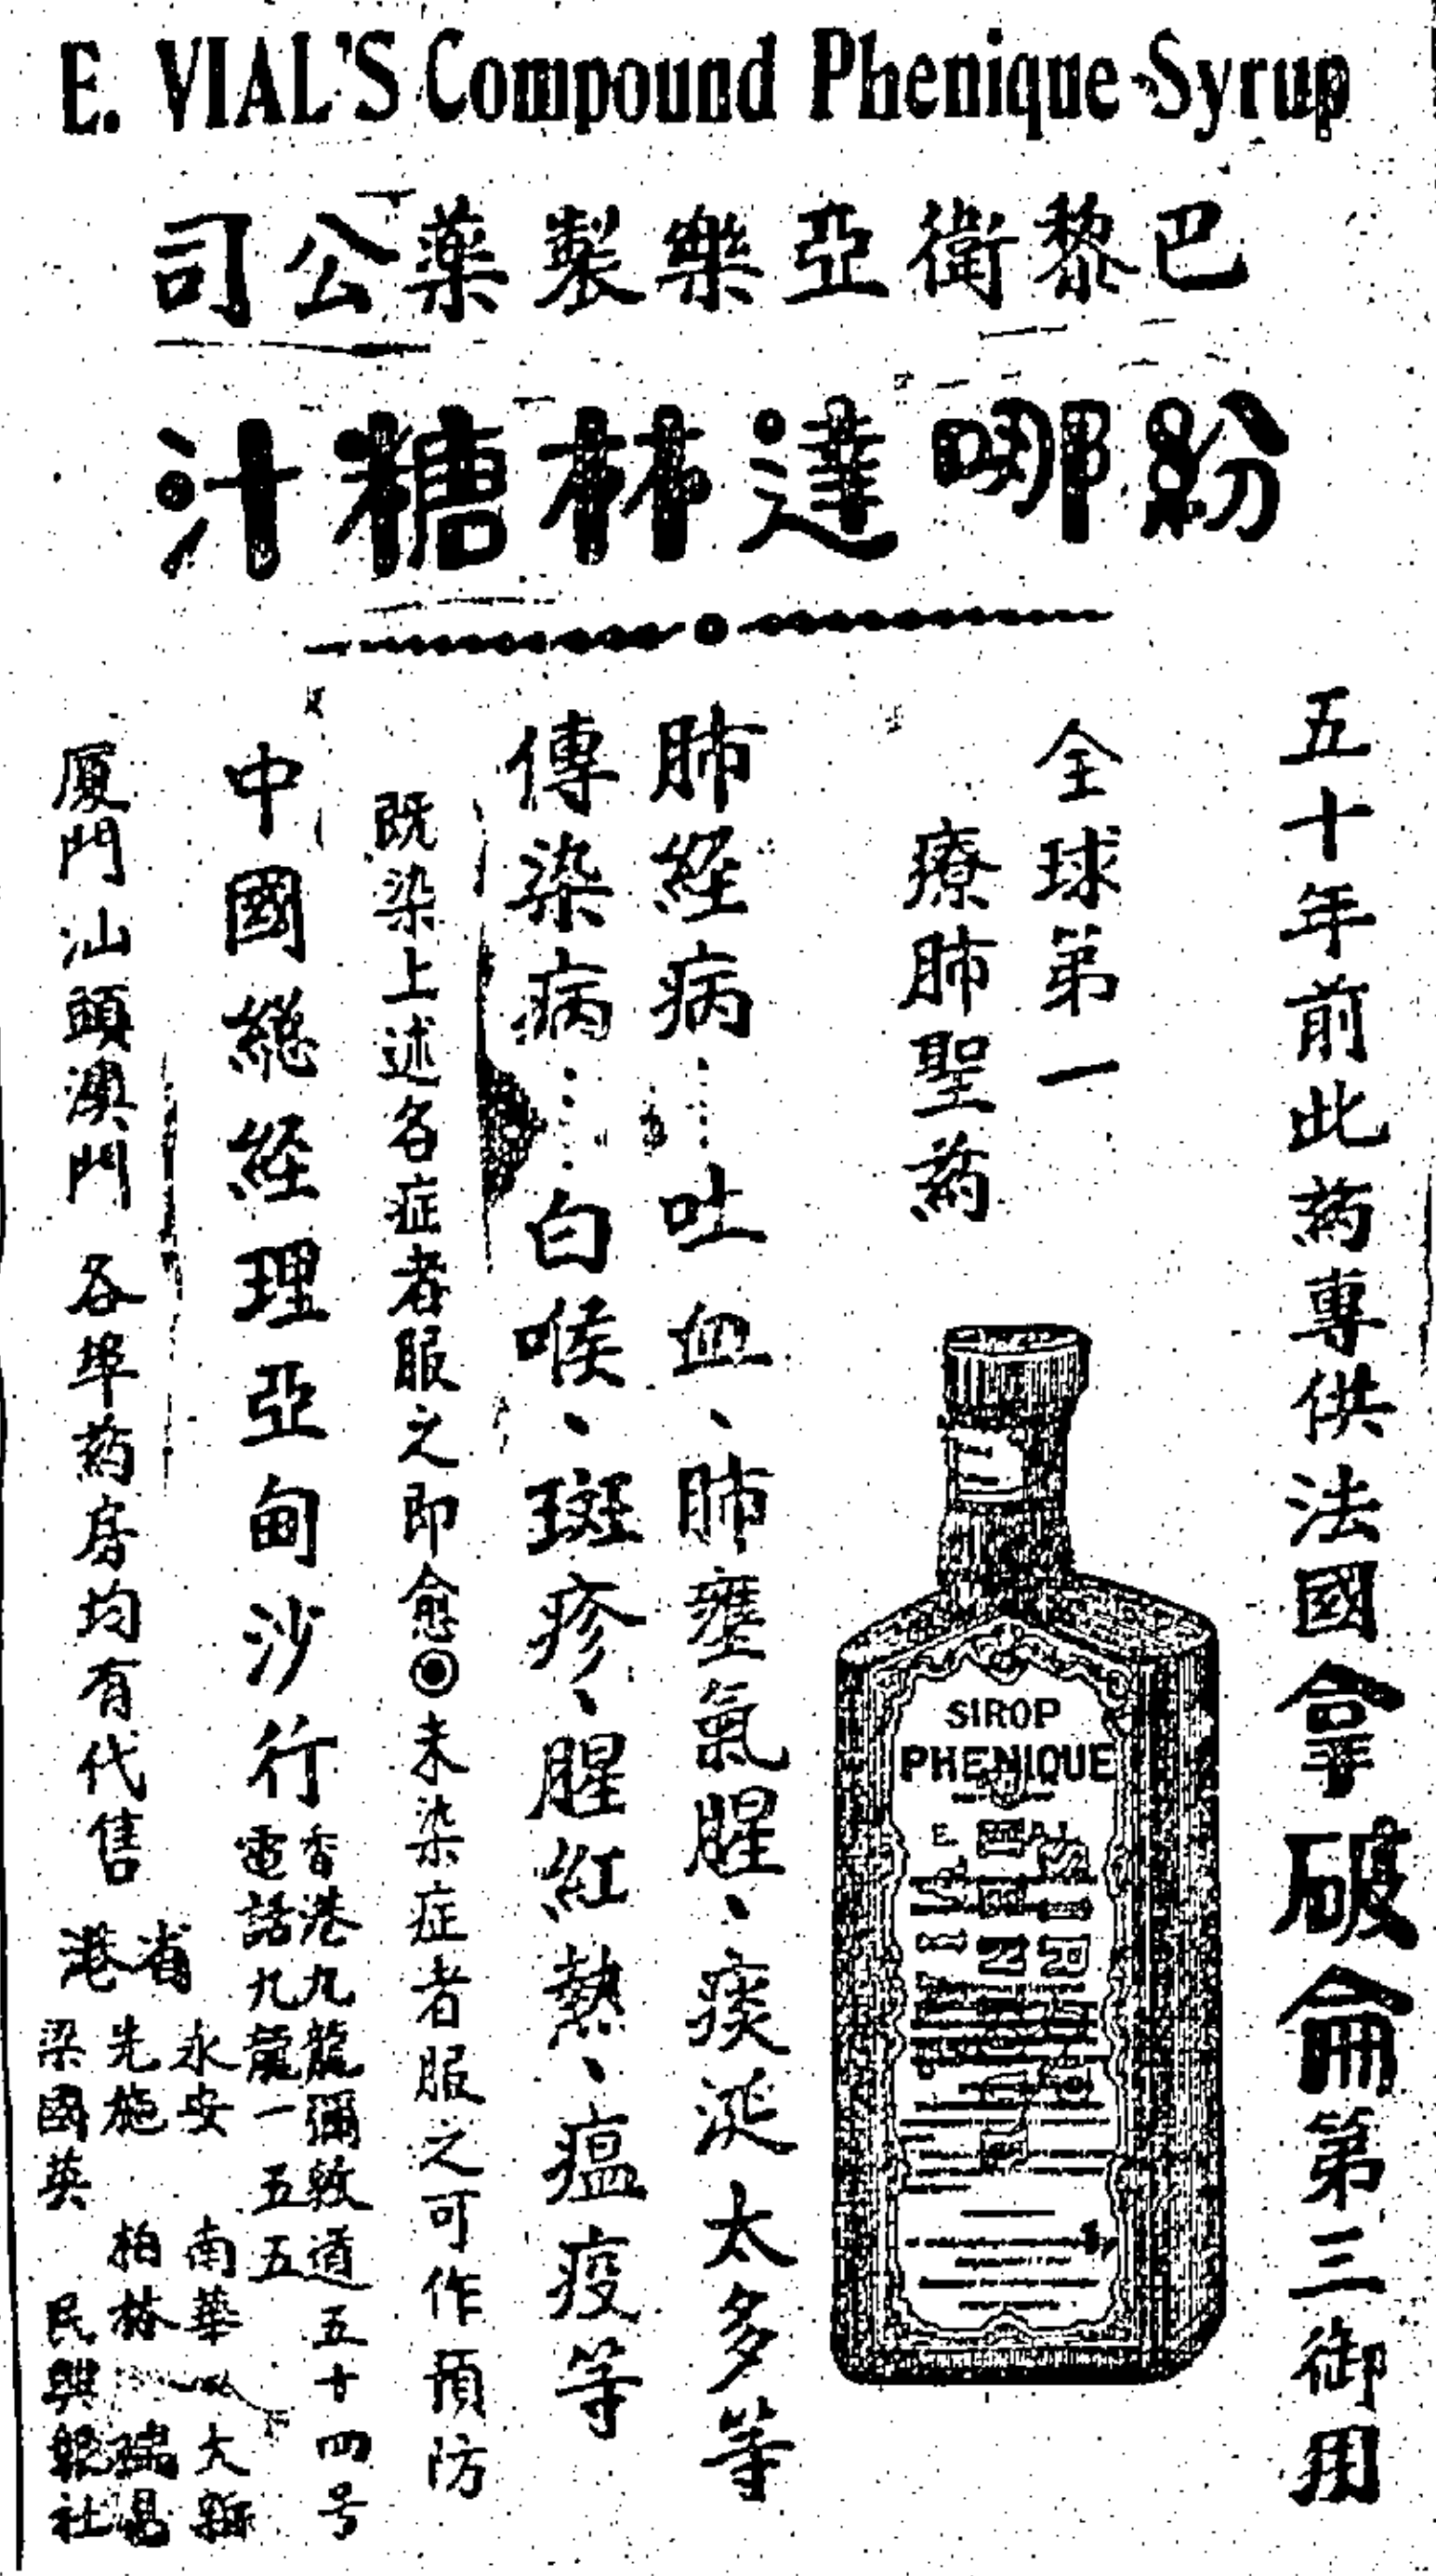 E. VIAL'S Compound Phenique Syrup
巴黎衛亞樂製藥公司
紛哪達林糖汁
五十年前此药專供法國拿破侖第三御用
全球第一
療肺聖药
SIROP
PHENIQUE
肺經病⋯⋯吐血、肺壅氣腥、痰涎太多等
傳染病⋯⋯白喉、斑疹、腥紅熱、瘟疫等
既染上述各症者服之即愈◎未染症者服之可作預防
中國總經理亞甸沙行
香港九龍彌敦道五十四号
電話九龍一五五五
厦門汕頭澳門 各埠药房均有代售
省港
永安 南華 大新
先施 柏林 瑞昌
梁國英 民興報社